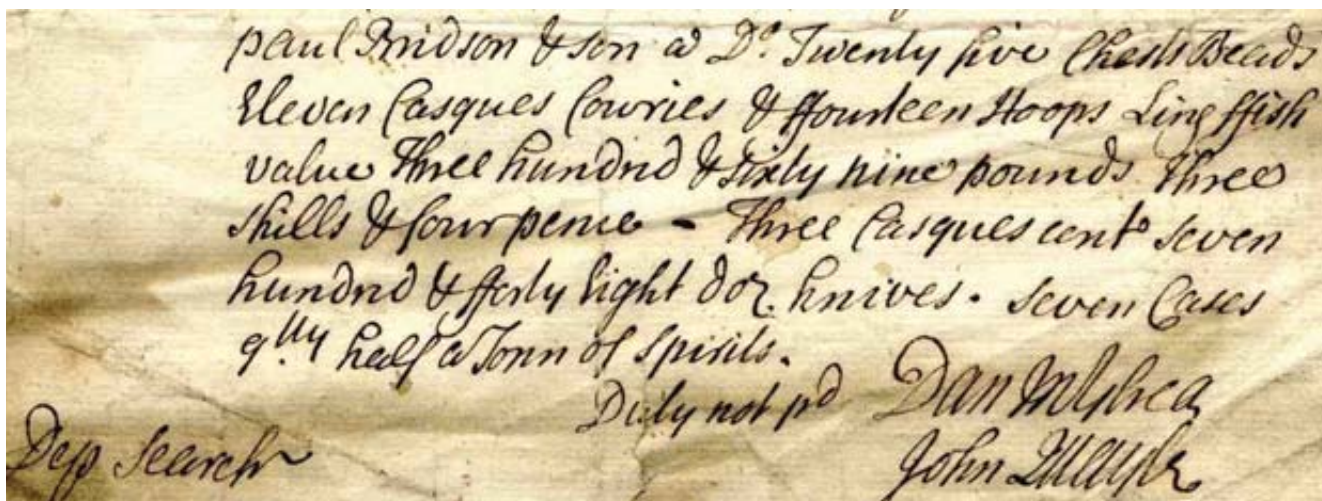 paul Bridson & son a Do. Twenty five Chests Beads
Eleven Casques Cowries & ffourteen Hoops Ling ffish
value Three hundred & sixty nine pounds Three
shills & four pence - Three Casques cont seven
hundrd & fforty Eight doz. knives. Seven Cases
qtty half a Tonn of Spirits.
Duty not pd Dan
Dep Search John Quayle